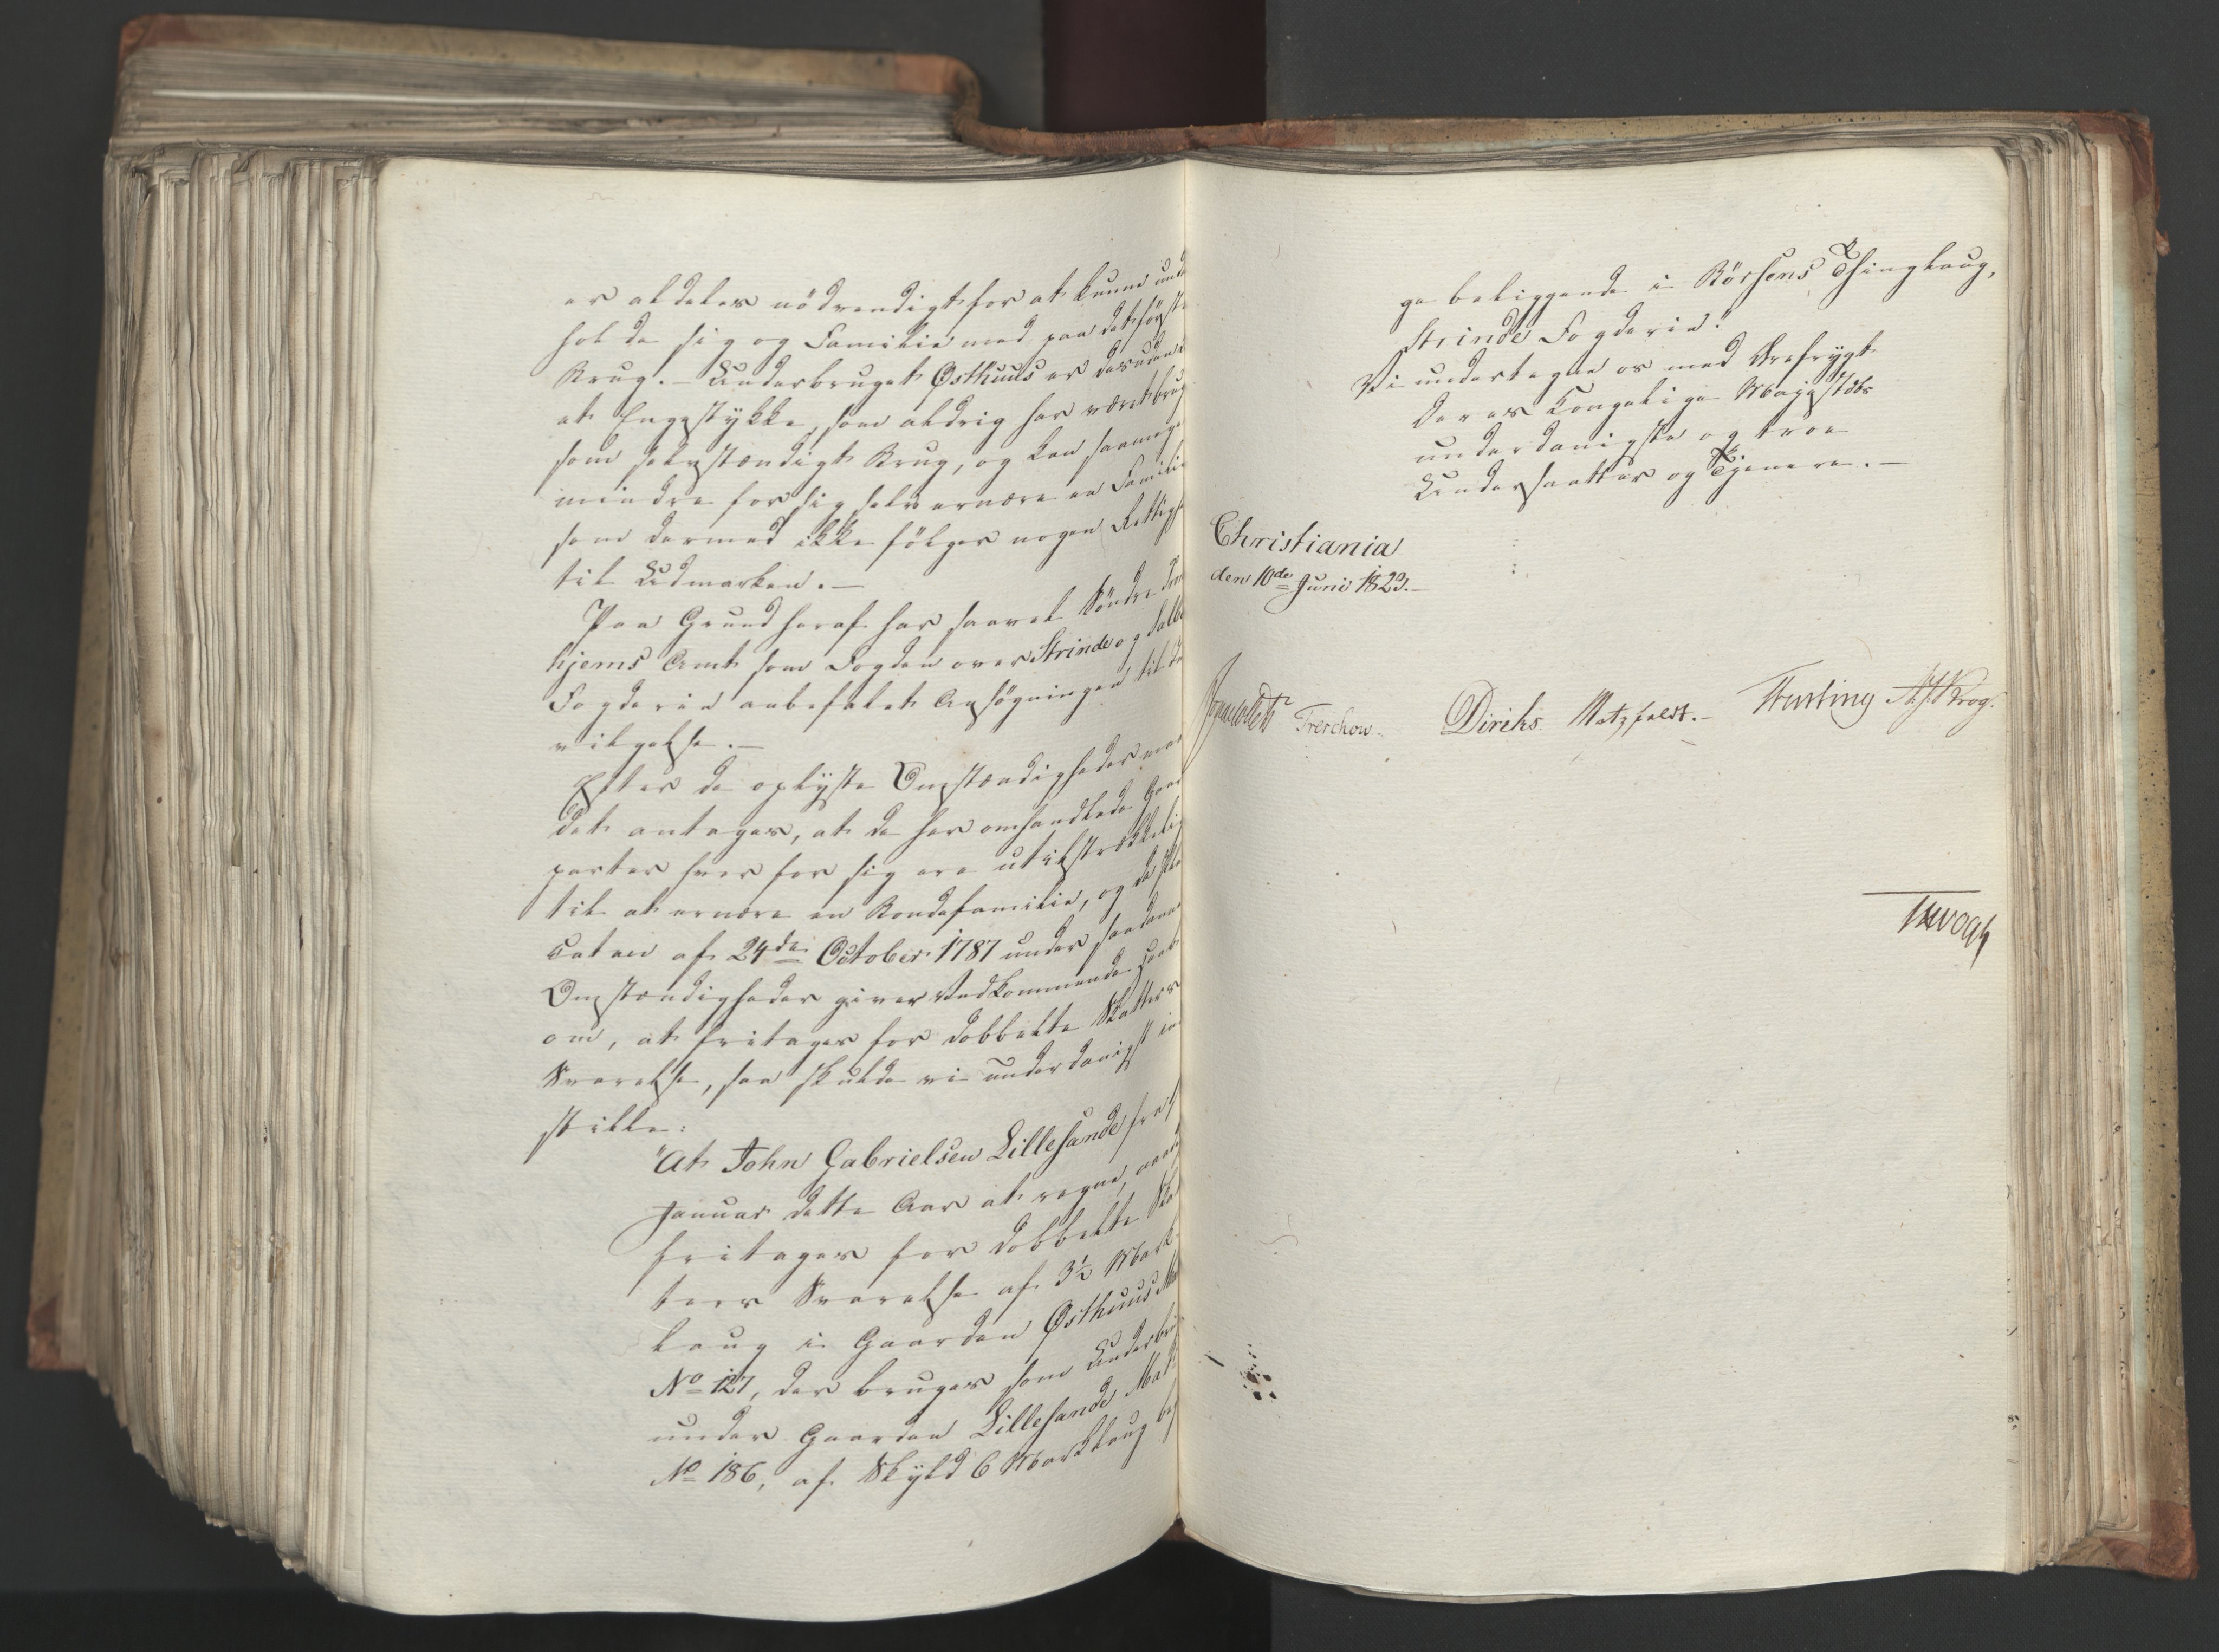 er aldeles nödvendigt for at kunne und
holde sig og Familie med paa det förste
Brug. – Underbruget Østhuus er desuden
et Engestykke, som aldrig har været brug
som selvstændigt Brug, og kan saameget
mindre for sig selv ernære en Familie
som dermed ikke fölger nogen Rettigh
til Udmarken. –
Paa Grund heraf har saavel Söndre Trond
hjems Amt som Fogden over Strinde og Selbo
Fogderie anbefalet Ansögningen til Be
vilgelse. –
Efter de oplyste Omstændigheder maa
det antages, at de her omhandlede Gaard
parter hver for sig ere utilstrækkelig
til at ernære en Bondefamilie, og da Pla
caten af 24de October 1787 under saadanne
Omstændigheder giver Vedkommende Haab
om, at fritages for dobbelte Skatters
Svarelse, saa skulde vi underdanigst ind
stille:
"At John Gabrielsen Lillesande fra
Januar dette Aar at regne, naad
fritages for dobbelte Ska
ters Svarelse af 3½ Mark
laug i Gaarden Østhuus Ma
No 127, der bruges som Underbru
under Gaarden Lillesande Mat
No 186, af Skyld 6 Marklaug be
ge beliggende i Börsens Thinglaug,
Strinde Fogderie."
Vi undertegne os med Ærefrygt
Deres Kongelige Majestæts
underdanigste og troe
Undersaatter og Tjenere. –
Christiania
den 10de Junii 1823. –
Sommerfeldt Treschow. Diriks Motzfeldt. – Fasting Krog.
Vogt